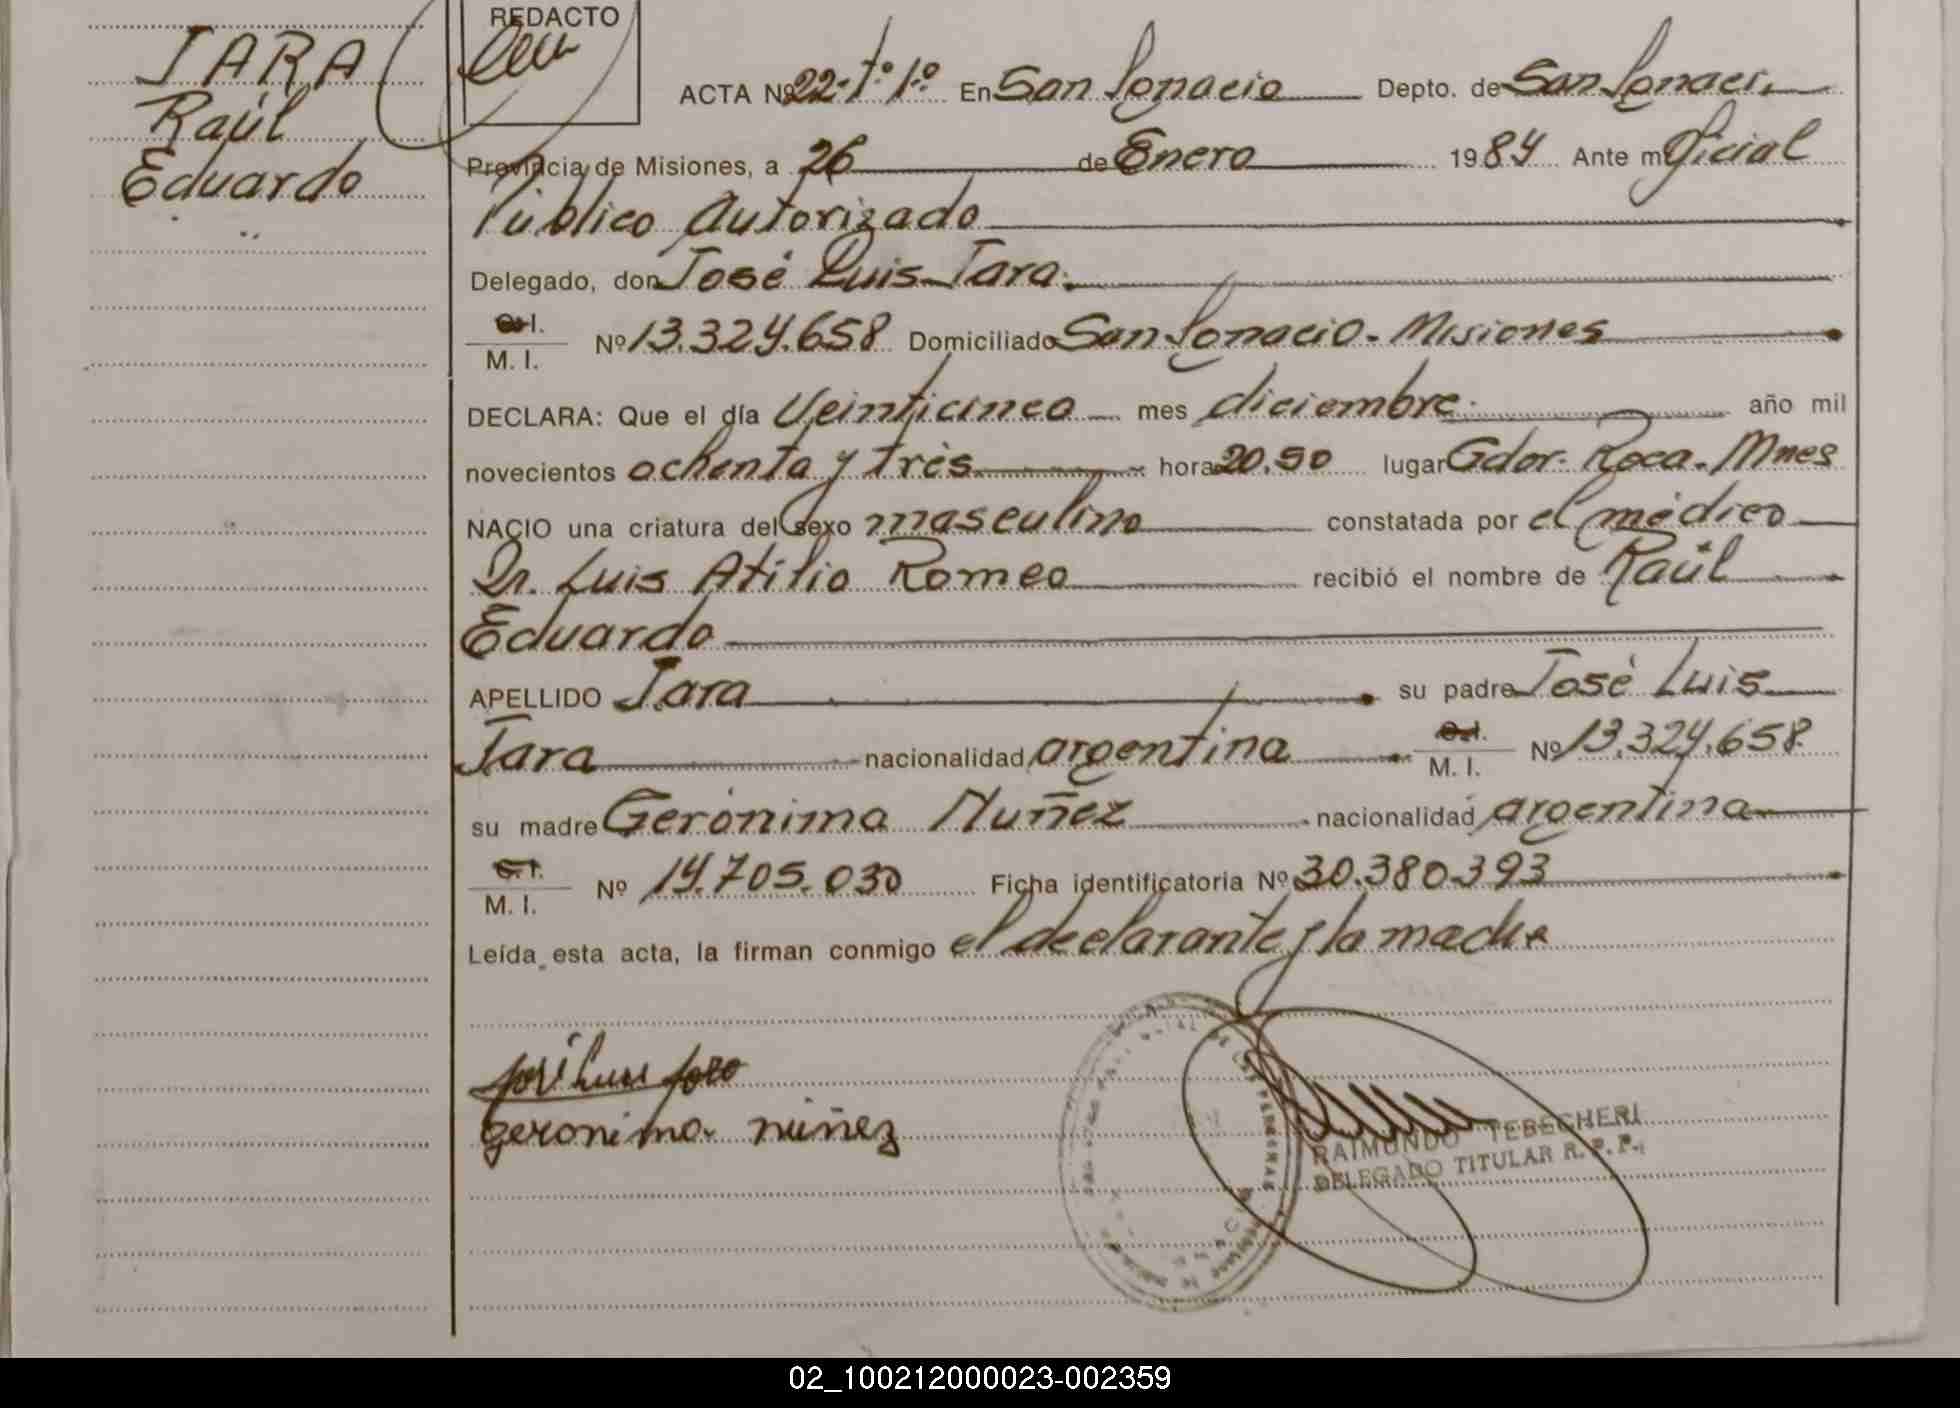 JARA
Raúl
Eduardo
REDACTO
ACTA Nº 22-Tº 1º En San Ignacio Depto. de San Ignacio
Provincia de Misiones, a 26 de Enero 1984 Ante mí Oficial
Público Autorizado
Delegado, don José Luis Jara.
C.I. M. I. Nº 13.324.658 Domiciliado San Ignacio - Misiones
DECLARA: Que el día Veinticinco mes diciembre. año mil
novecientos ochenta y trés hora 20,50 lugar Gdor. Roca. Mnes
NACIO una criatura del sexo masculino constatada por el médico
Dr. Luis Atilio Romeo recibió el nombre de Raúl
Eduardo
APELLIDO Jara su padre José Luis
Jara nacionalidad argentina C.I. M. I. Nº 13.324.658
su madre Gerónima Nuñez nacionalidad argentina
C.I. M. I. Nº 14.705.030 Ficha identificatoria Nº 30.380.393
Leída esta acta, la firman conmigo el declarante y la madre
José Luis Jara
geronima núñez
RAIMUNDO TEBECHERI
DELEGADO TITULAR R. P. P.
02_100212000023-002359